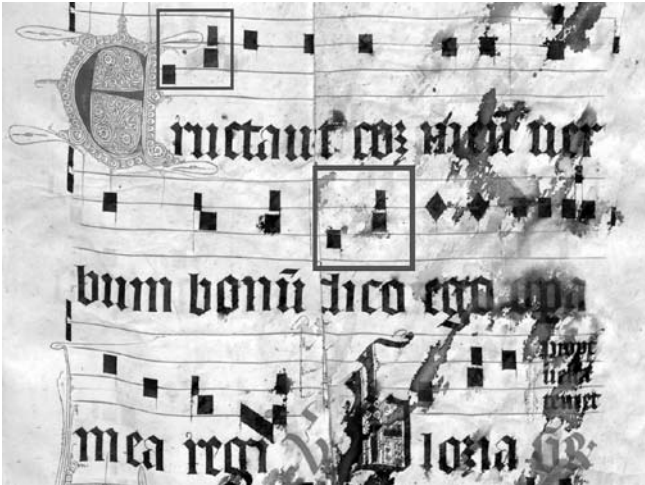 Eructauit cor meū uer
bum bonū dico ego opa
mea regi ℣ Gloria